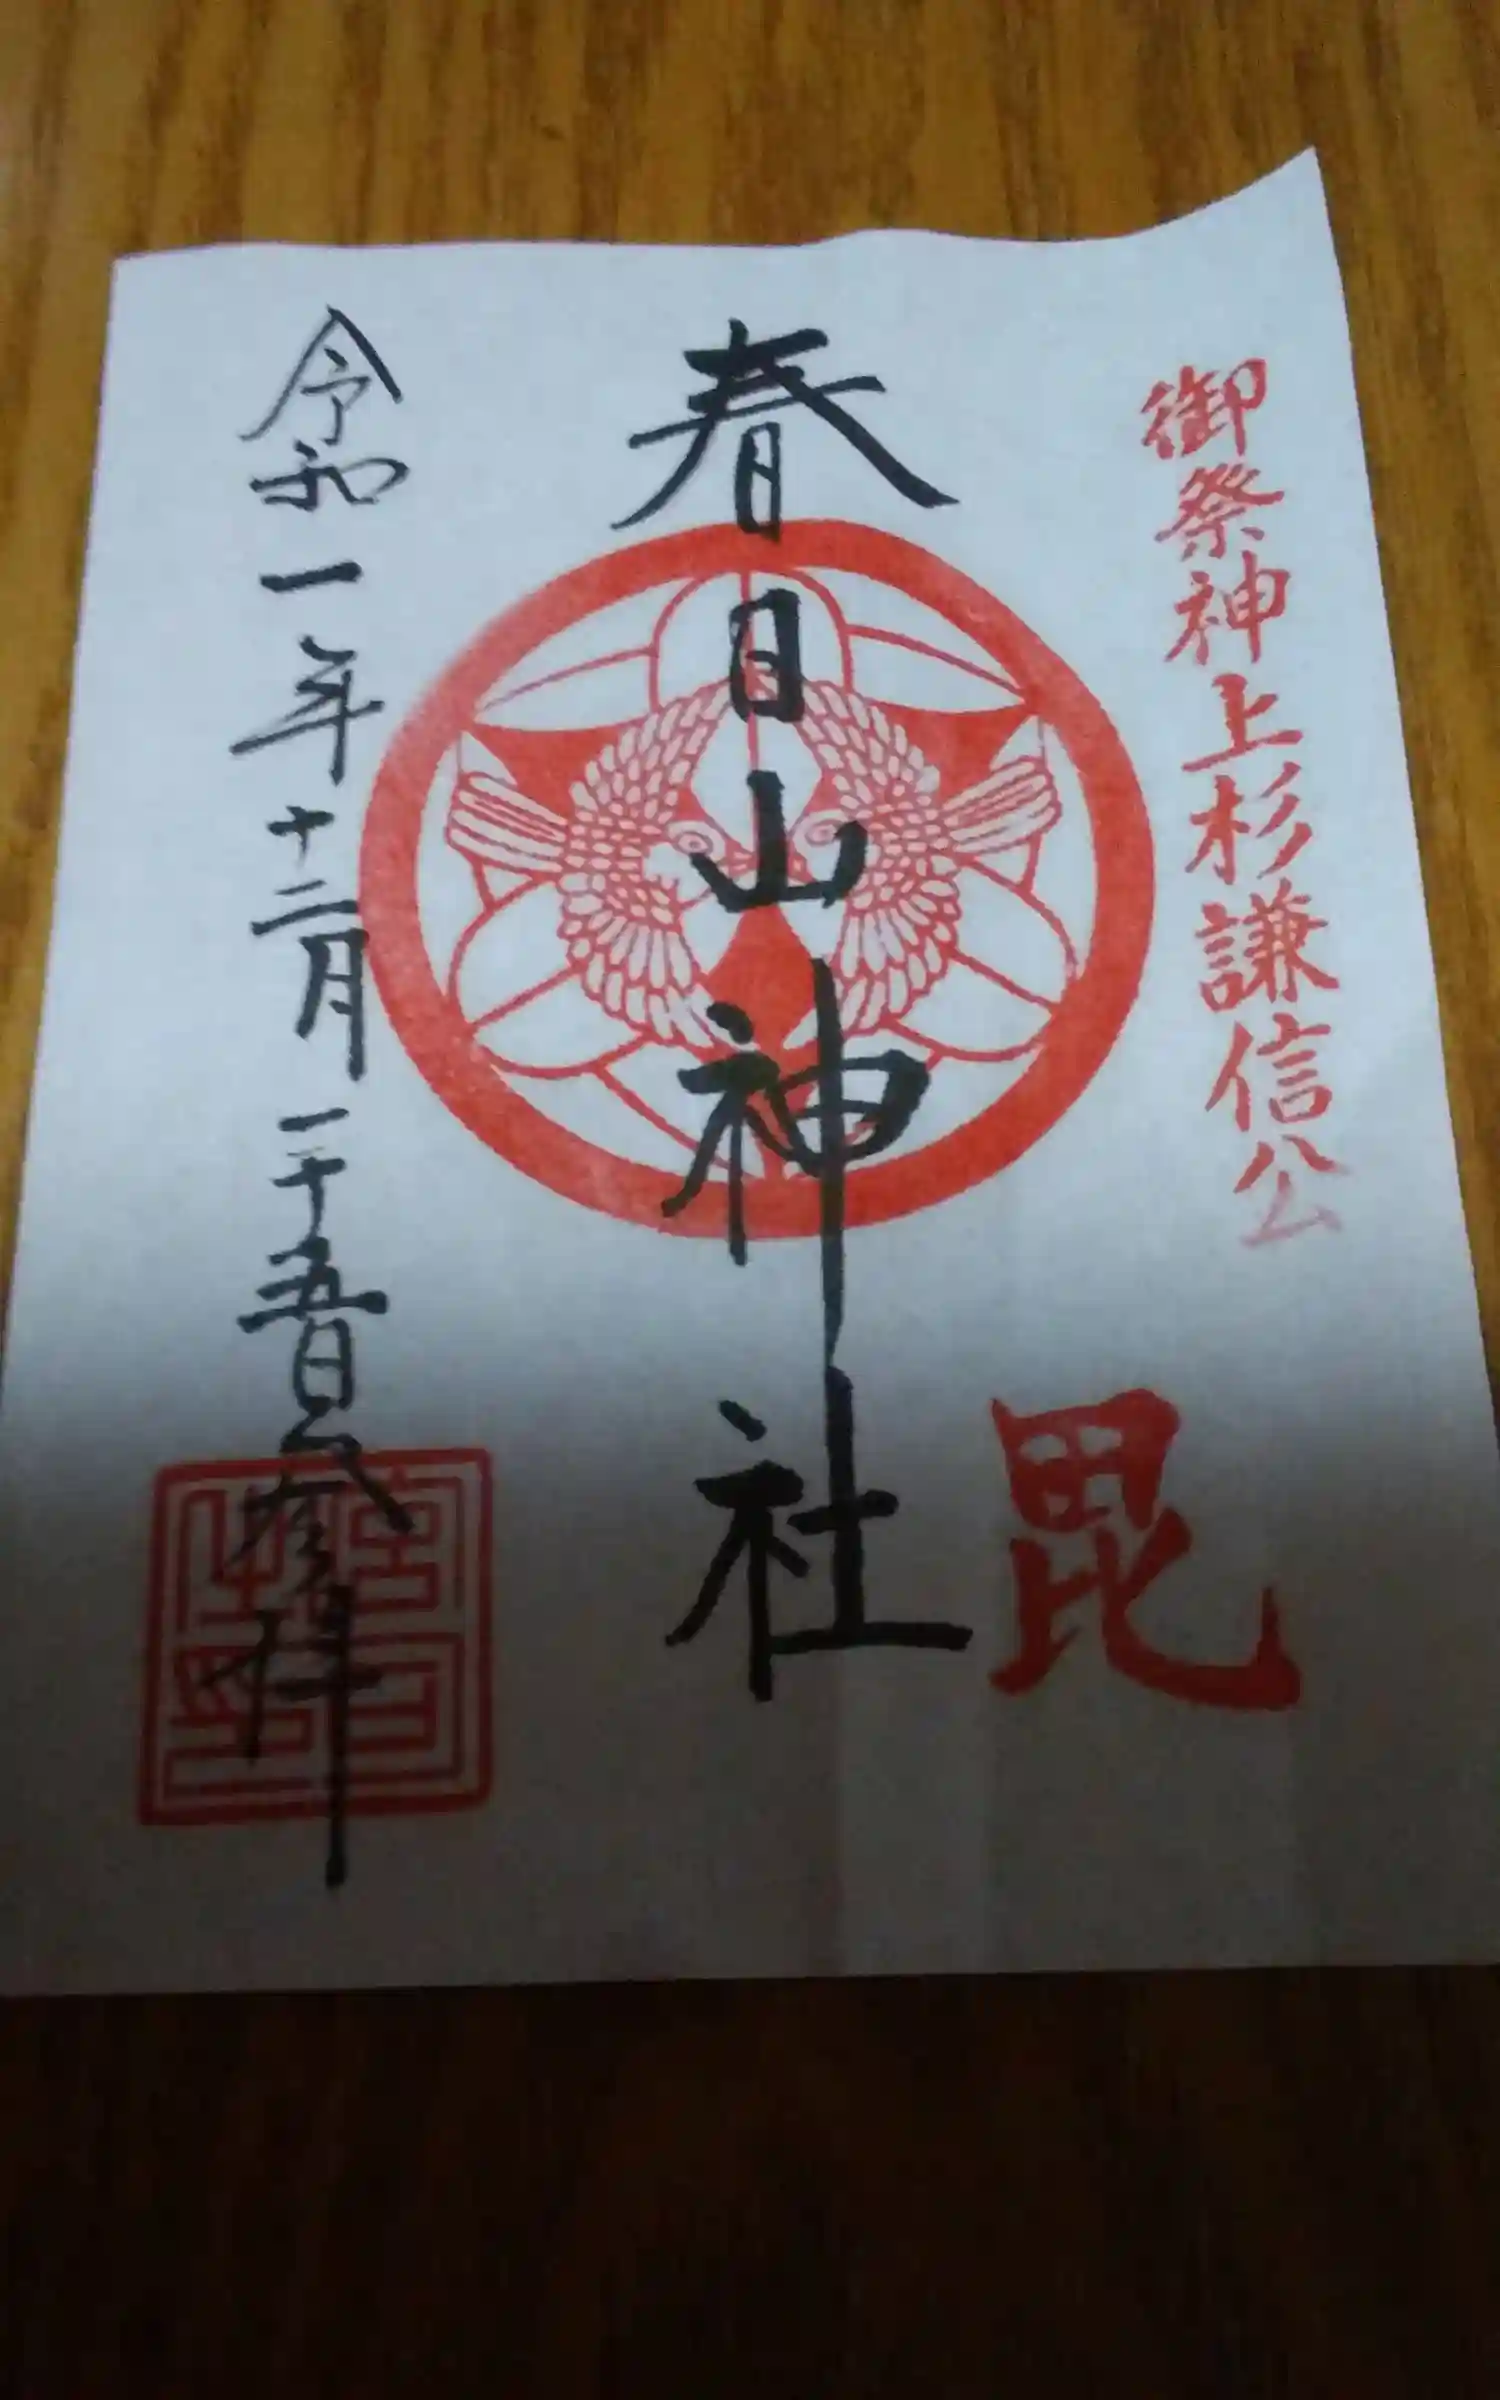 御祭神上杉謙信公
毘
春日山神社
令和一年十二月二十五日参拝